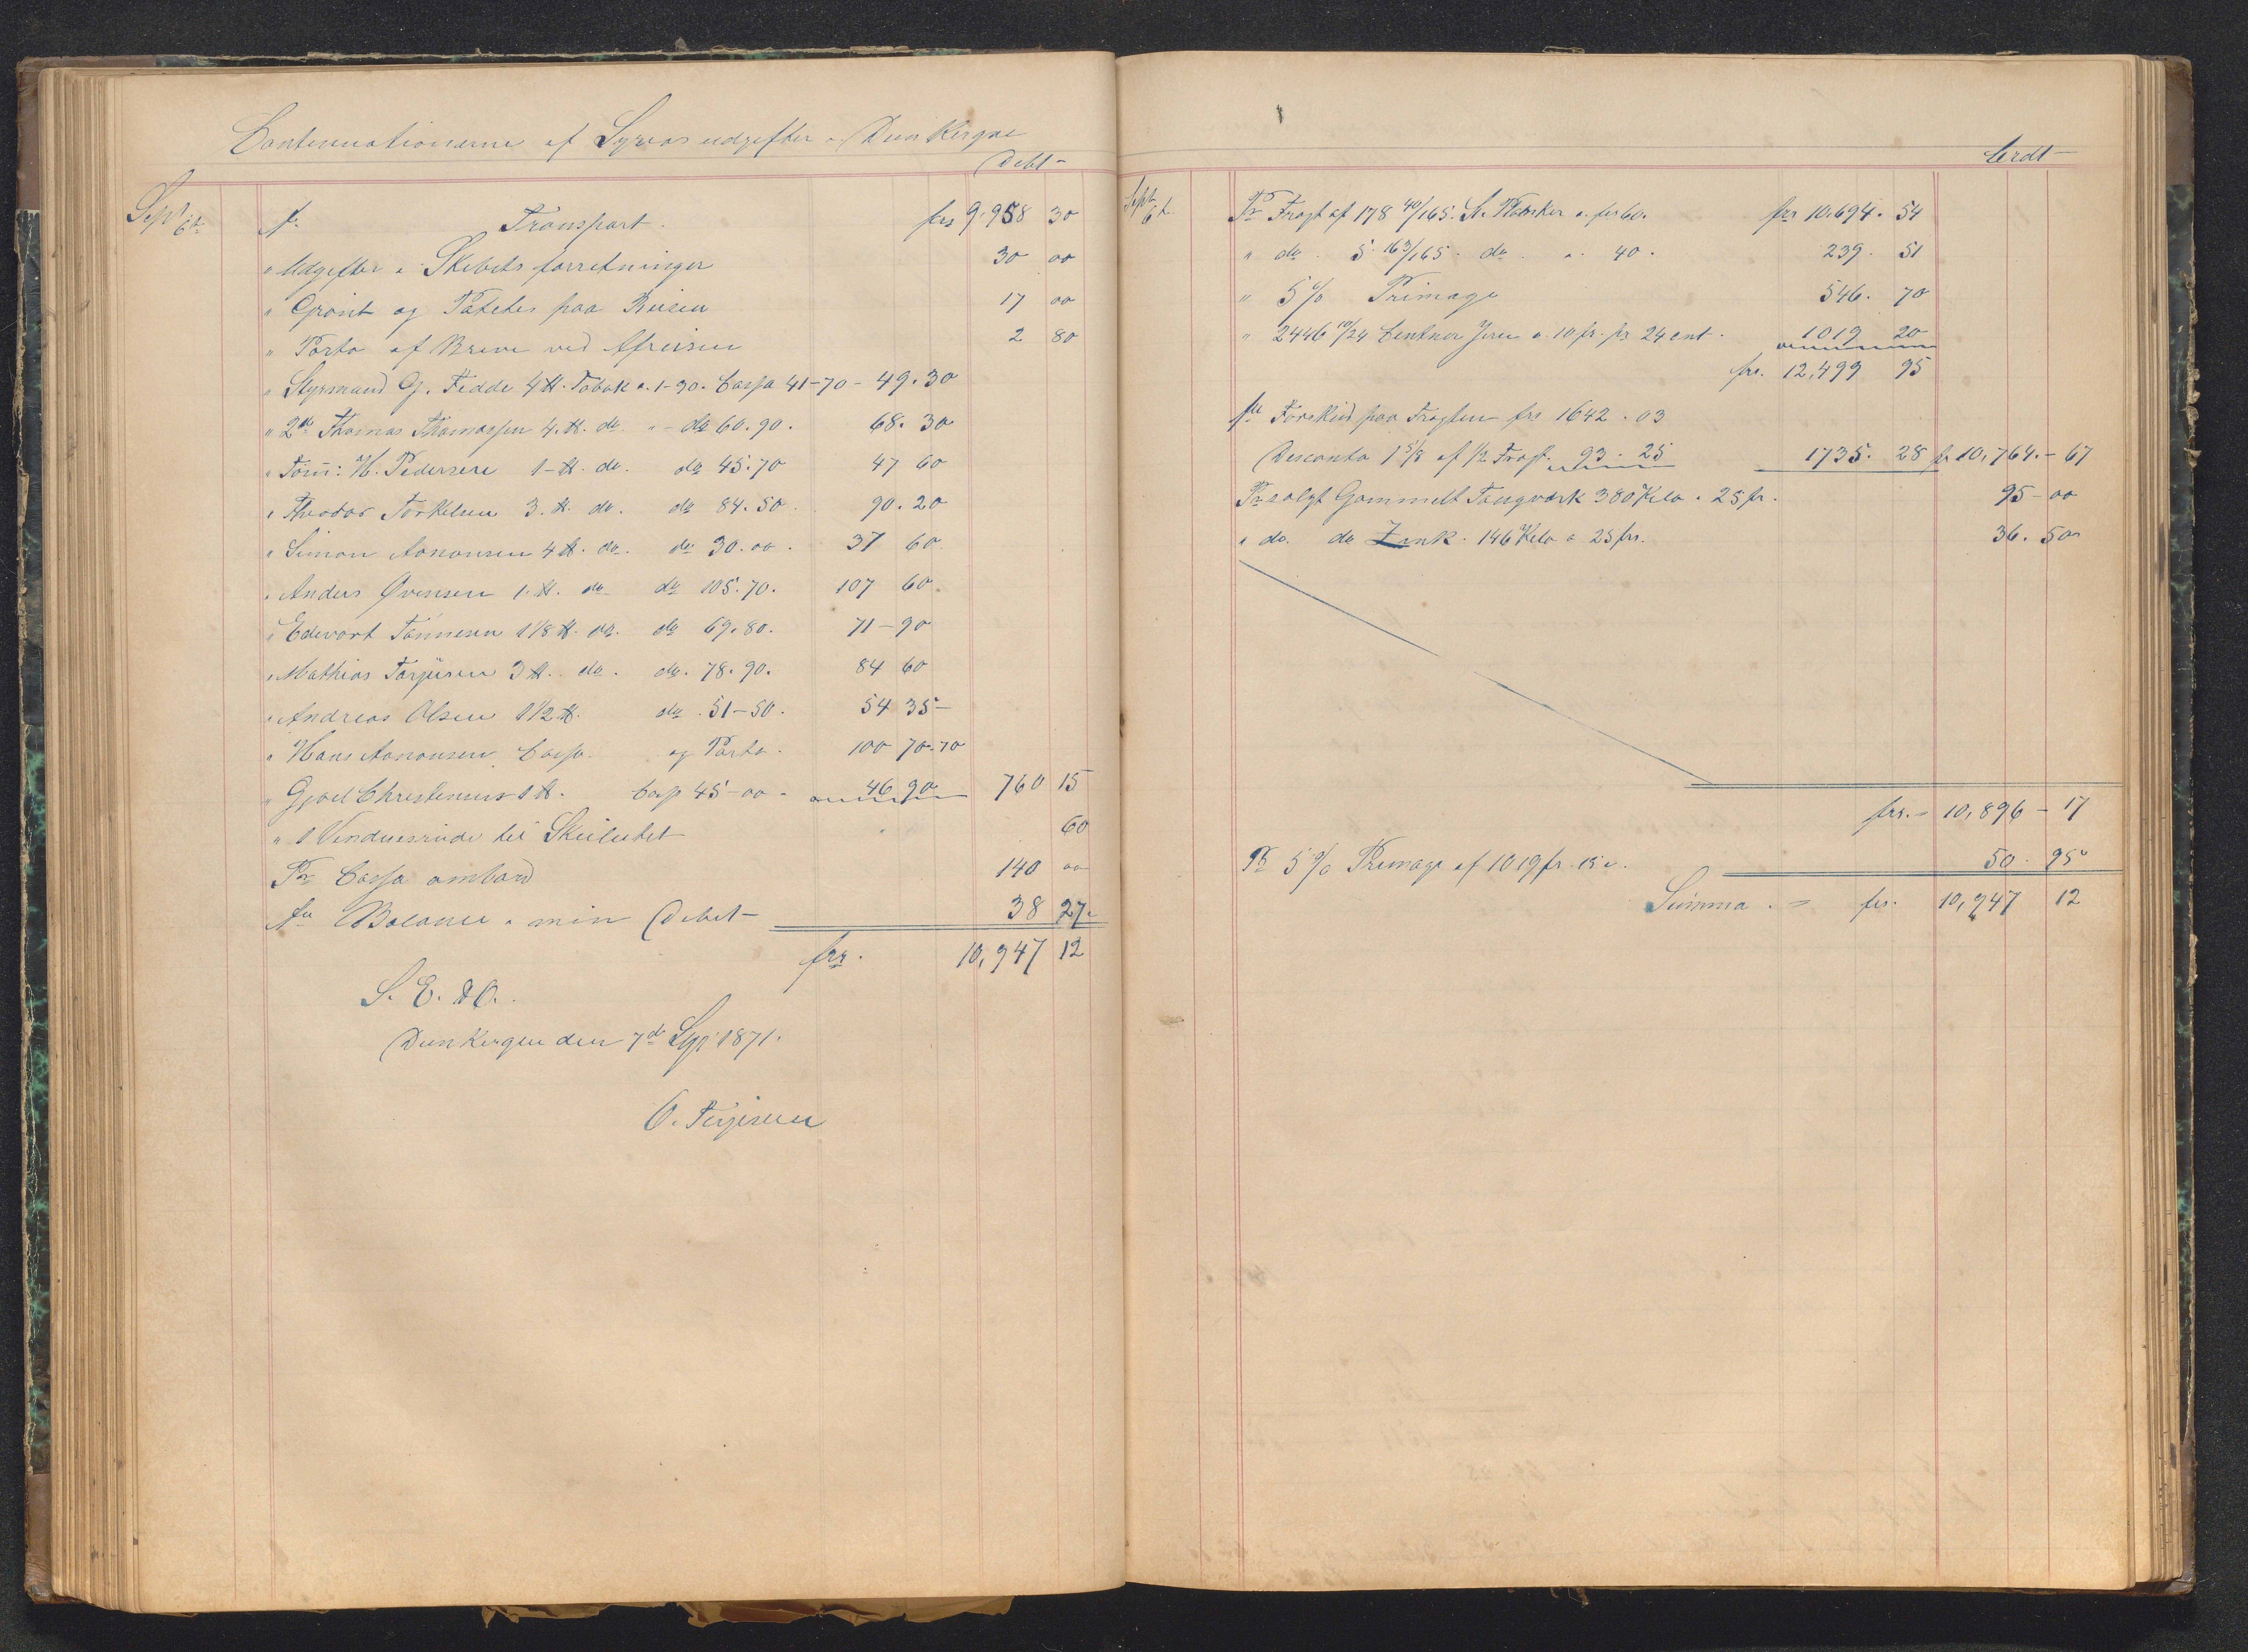 Continuationerne af Syrias udgifter i Dunkerque
Debt –
Sept 6te An Transport frs 9.958 30
" Udgifter i Skibets forretninger 30 00
" Grönt og Patetes paa Reisen 17 00
" Porto af Breve ved Afreisen 2 80
" Styrmand G. Fedde 4 ℔. Tobak a. 1-90. Cassa 41-70 - 49.30
" 2de Thomas Thomassen 4. ℔. do. " - do 60.90. 68.30
" Töm: H. Pedersere 1-℔. do. do 45.70 47 60
" Theodor Torkelsen 3. ℔. do. do 84.50. 90.20
" Simon Aanonsen 4 ℔. do. do 30.00. 37 60
" Anders Övensen 1. ℔. do do 105.70. 107 60.
" Edevart Tönnesen 1 1/8 ℔. do. do 69.80. 71-90
" Mathias Torjusen 3 ℔. do. do. 78.90. 84 60
" Andreas Olsen 1 1/2 ℔. do. 51-50. 54 35-
" Hans Aanonsen. Cassa. og Porto. 100 70.70
" Gjoel Christensens 1 ℔. Cassa 45-00 - 46 90 760 15
" 1 Venduesrude til Skeiletet 60
Pr Cassa ombord 140 00
An Balance i min Debet – 38 27.
frs. 10,947 12
S. E. & O.
Dunkerquen den 7de Sept 1871.
O. Terjesen
Credt –
Sept 6te Pr Fragt af 178 40/165. St. Planker a. frs 60. frs 10.694. 54
" do. 5. 163/165. do. a. 40. 239. 51
" 5 % Primage 546. 70
" 2446 10/24 Centner Jern a. 10 fr. pr 24 cnt. 1019 20
frs. 12,499 95
An Forskud paa Fragten frs 1642.03
Desconto 1 5/8 af 1/2 Fragt. 93.25 1735. 28 fr 10,764.- 67
Pr solgt Gammelt Tougværk 380 Kilo a 25 fr. 95-00
" do. do Zink. 146 Kilo a 25 frs. 36.50
frs. - 10,896 - 17
Pr 5 % Primage af 1019 fr. 15 c. 50. 95
Summa. = frs. 10,947 12